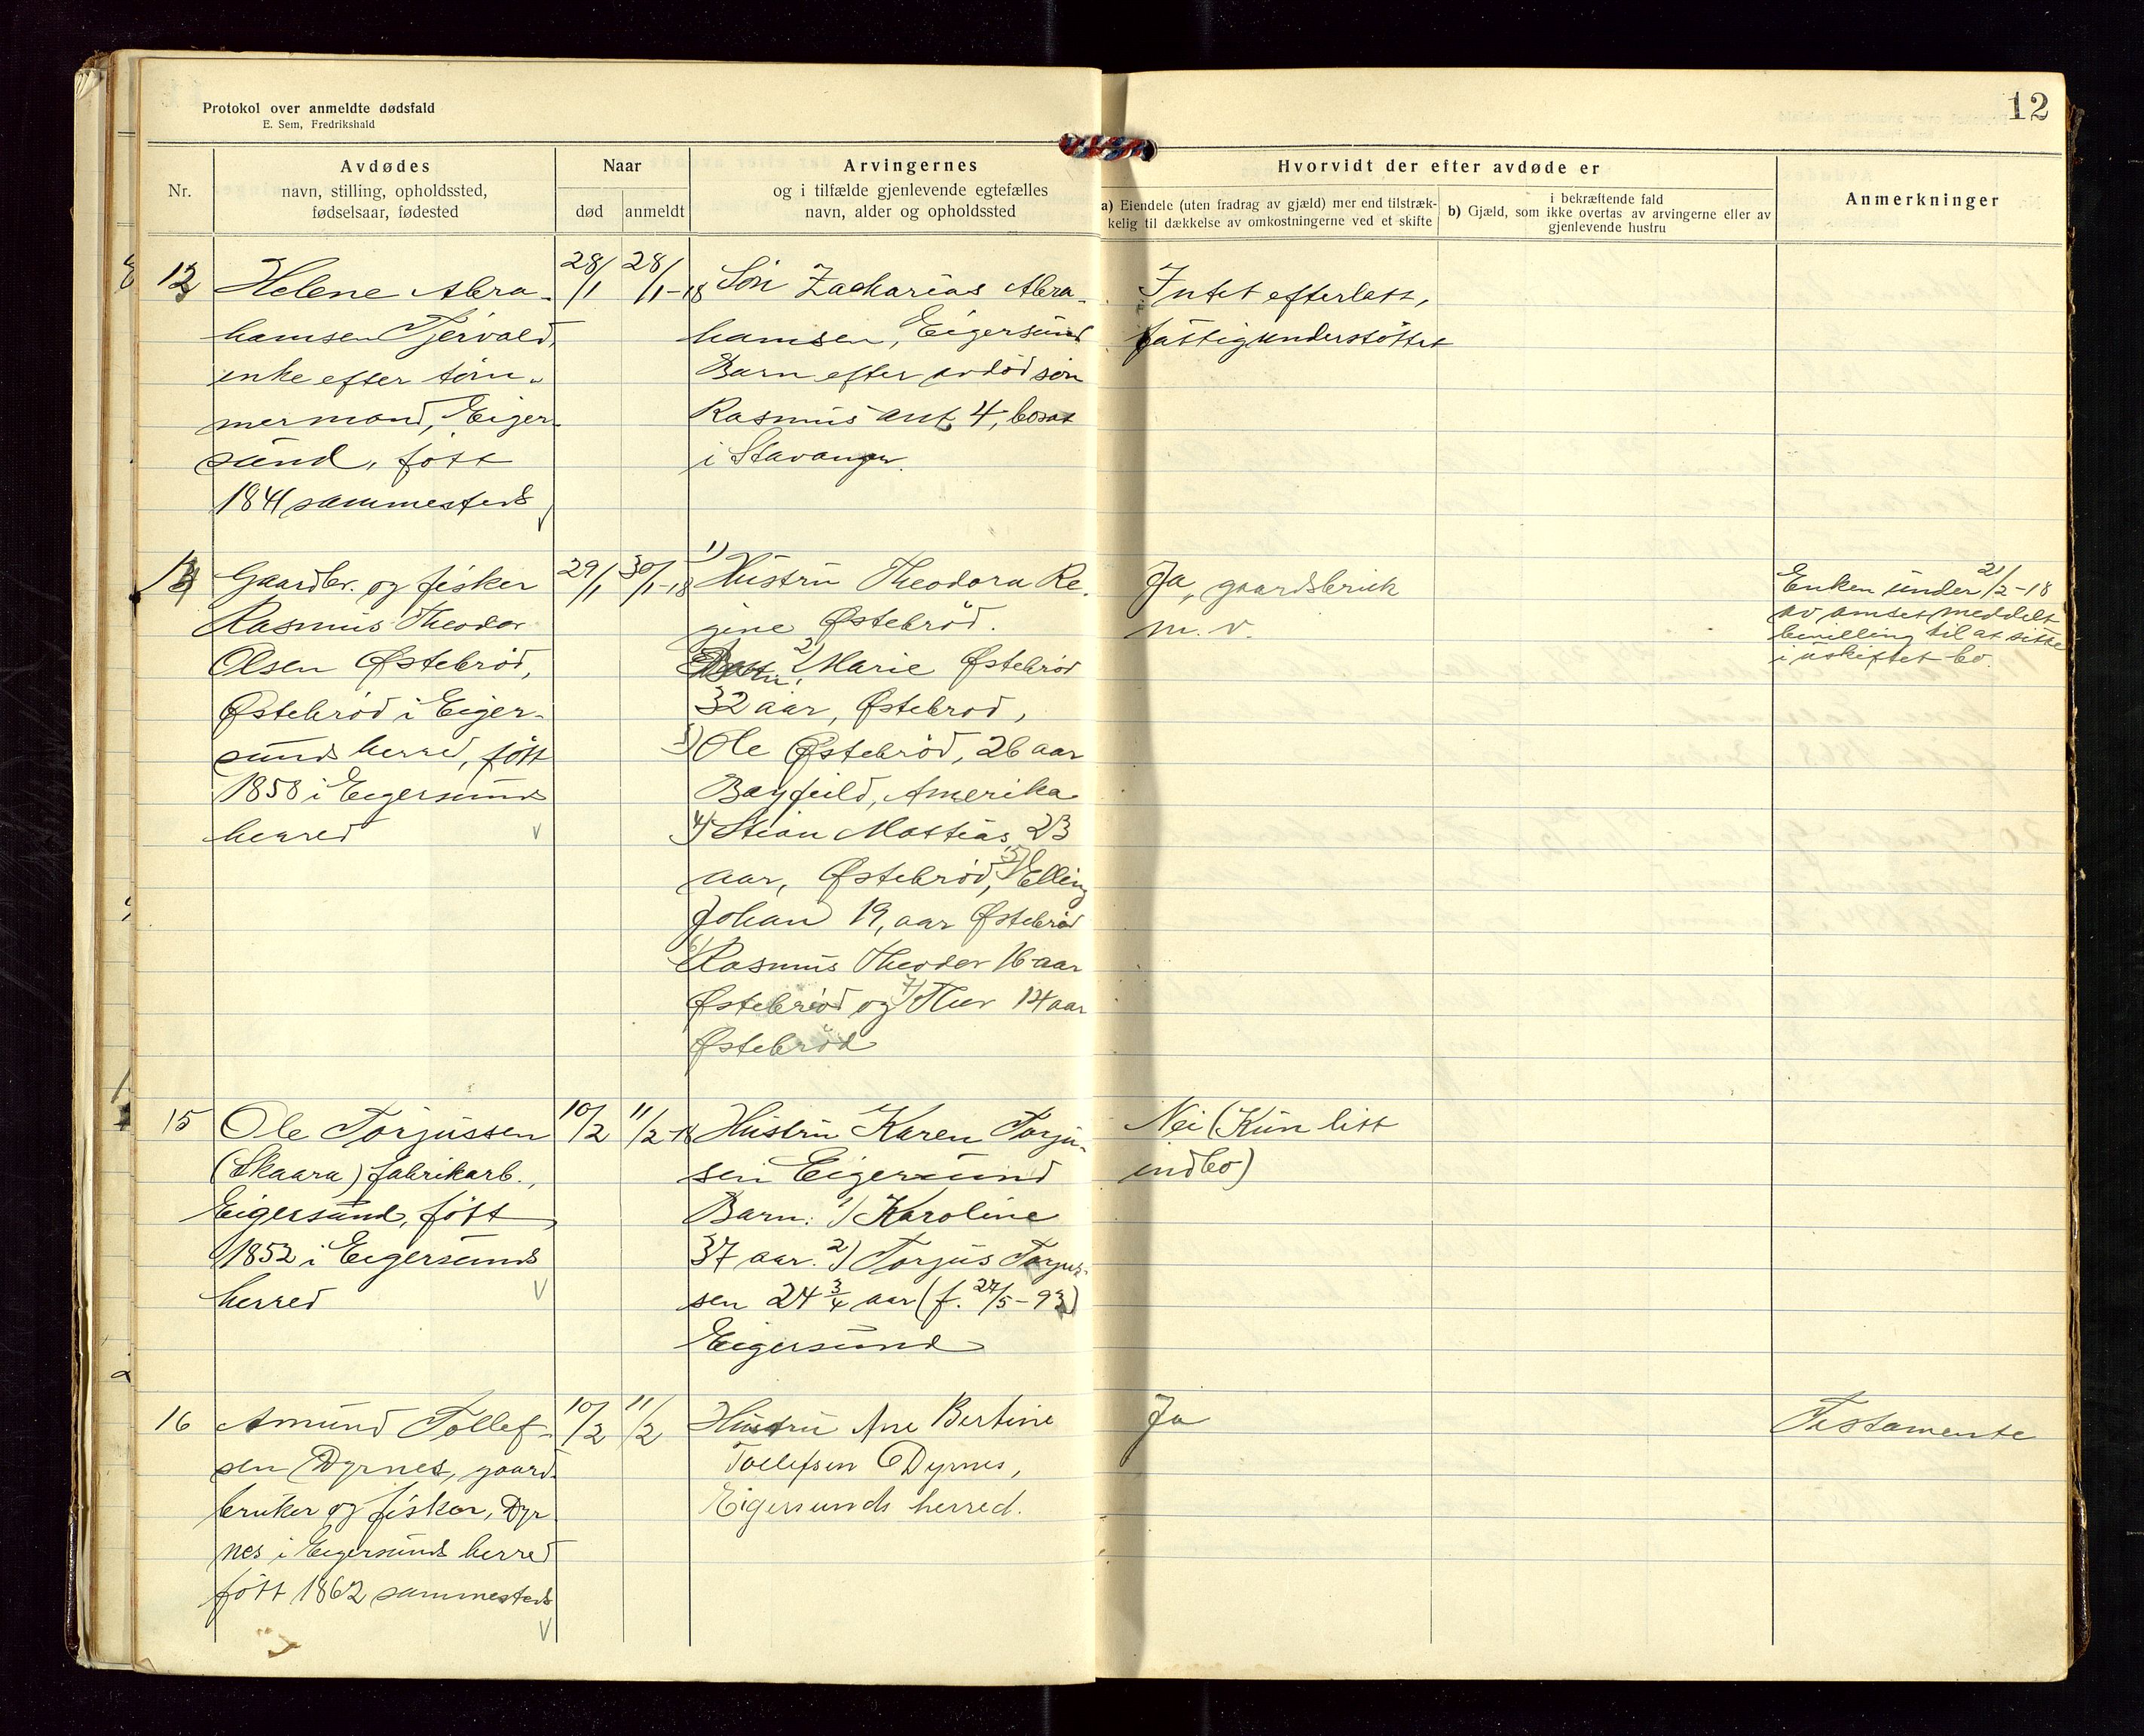 12
Protokol over anmeldte dødsfald
E. Sem, Fredrikshald
Nr.
Avdødes
navn, stilling, opholdssted,
fødselsaar, fødested
Naar
død
anmeldt
Arvingernes
og i tilfælde gjenlevende egtefælles
navn, alder og opholdssted
Hvorvidt der efter avdøde er
a) Eiendele (uten fradrag av gjæld) mer end tilstræk-
kelig til dækkelse av omkostningerne ved et skifte
i bekræftende fald
b) Gjæld, som ikke overtas av arvingerne eller av
gjenlevende hustru
Anmerkninger
13
Helene Abra-
hamsen Tjervold,
enke efter töm-
mermand, Eiger-
sund, fött
1841 sammesteds
28/1
28/1-18
Sön Zacharias Abra-
hamsen, Eigersund
Barn efter avdöd sön
Rasmus ant. 4, bosat
i Stavanger.
Intet efterlatt,
fattigunderstöttet
14
Gaardbr. og fisker
Rasmus Theodor
Olsen Østebröd,
Østebröd i Eiger-
sunds herred, fött
1858 i Eigersunds
herred
29/1
30/1-18
1) Hustru Theodora Re-
gine Østebröd.
2) Marie Østebröd
32 aar, Østebröd,
3) Ole Østebröd, 26 aar
Bayfeild, Amerika
4) Stian Mattias 23
aar, Østebröd, 5) Elling
Johan 19, aar Østebröd
6) Rasmus Theodor 16 aar
Østebröd og 7) Thor 14 aar
Østebröd
Ja, gaardsbruk
m. v.
Enken under 2/2-18
av amtet meddelt
bevilling til at sitte
i uskiftet bo.
15
Ole Torjussen
(Skaara) fabrikarb.,
Eigersund, fött
1852 i Eigersunds
herred
10/2
11/2-18
Hustru Karen Torju-
sen Eigersund
Barn: 1) Karoline
37 aar. 2) Torjus Torjus-
sen 24 3/4 aar (f. 27/5-93)
Eigersund
Nei (Kun litt
indbo)
16
Amund Tollef-
sen Dyrnes, gaard-
bruker og fisker, Dyr
nes i Eigersunds herred
fött 1862 sammesteds
10/2
11/2
Hustru Ane Bertine
Tollefsen Dyrnes,
Eigersunds herred.
Ja
Testamente